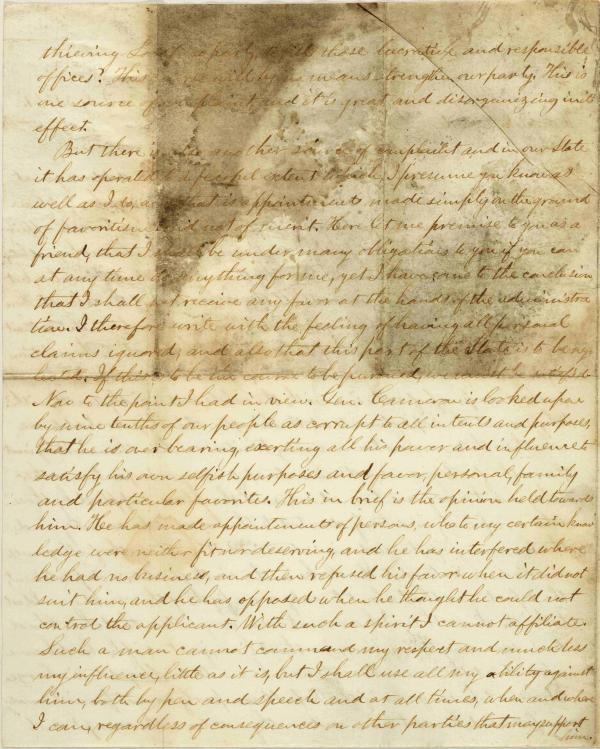 thieving
and responsible
offices? This will by no means strengthen our party. This is
one source of complaint, and it is great and disorganizing in its
effect.
But there is also another source of complaint and in our State
it has operated to a fearful extent which, I presume you know as
well as I do, and that is appointments made simply on the ground
of favoritism and not of merit. Here let me premise to you as a
friend, that I shall be under many obligations to you if you can
at any time do anything for me, yet I have come to the conclusion
that I shall not receive any favor at the hands of the administra
tion. I therefore write with the feeling of having all personal
claims ignored, and also that this part of the State is to be neg
lected. If this is to be the course to be pursued, we must be satisfied.
Now to the point I had in view. Gen. Cameron is looked upon
by nine tenths of our people as corrupt to all intents and purposes,
that he is over bearing, exerting all his power and influence to
satisfy his own selfish purposes and favor, personal, family
and particular favorites. This in brief is the opinion held towards
him. He has made appointments of persons, who to my certain know
ledge were neither fit nor deserving, and he has interfered where
he had no business, and then refused his favor when it did not
suit him, and he has opposed when he thought he could not
control the applicant. With such a spirit I cannot affiliate.
Such a man cannot command my respect and much less
my influence, little as it is, but I shall use all my ability against
him, both by pen and speech and at all times, when and where
I can, regardless of consequences on other parties that may support
him.